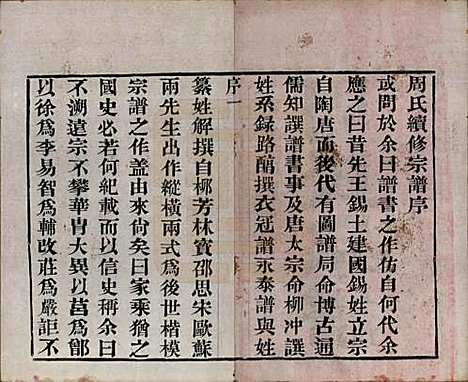 周氏續修宗譜序
或問於余曰譜書之作仿自何代余
應之曰昔先王錫土建國錫姓立宗
自陶唐而後代有圖譜局命博古通
儒知譔譜書事及唐太宗命柳冲譔
姓系録路醕撰衣冠譜永泰譜與姓
序一
纂姓解撰自柳芳林寳邵思宋歐蘇
兩先生出作縱橫兩式爲後世楷模
宗譜之作蓋由來尙矣曰家乘猶之
國史必若何紀載而以信史稱余曰
不溯遠宗不攀華胄大異以莒爲鄫
以徐爲李易智爲輔改莊爲嚴詎不